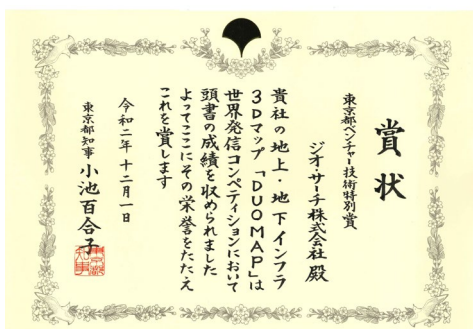 賞状
東京都ベンチャー技術特別賞
ジオ・サーチ株式会社 殿
貴社の地上・地下インフラ
3Dマップ「DUOMAP」は
世界発信コンペティションにおいて
頭書の成績を収められました
よってここにその栄誉をたたえ
これを賞します
令和二年十二月一日
東京都知事 小池百合子
東京都知事